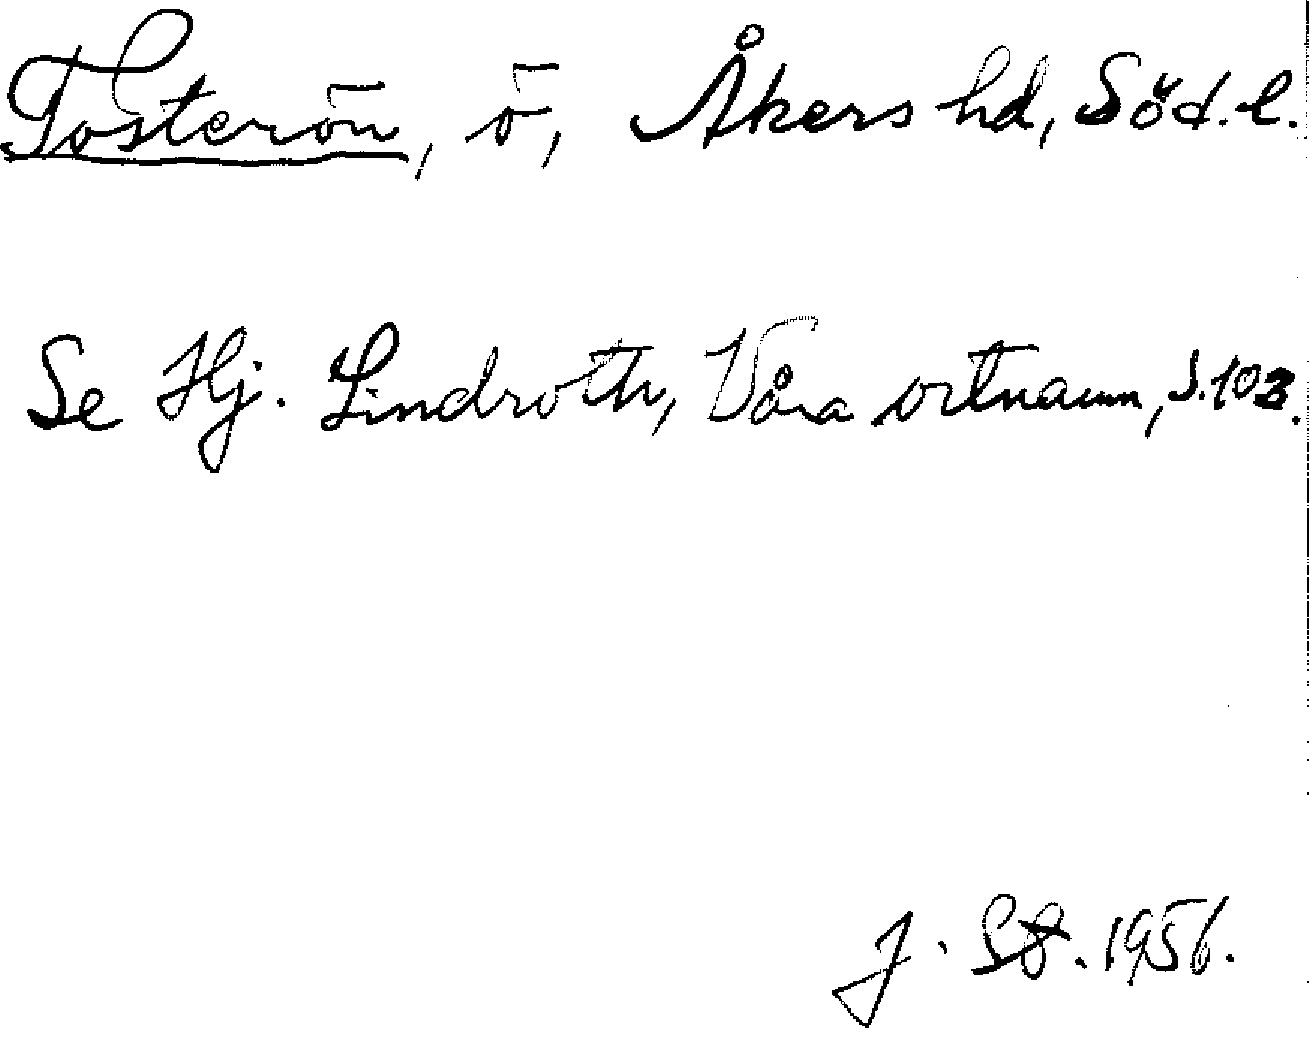 Tosterön, ö, Åkers hd, Söd.l.
Se Hj. Lindroth, Våra ortnamn, s.103.
J. 1956.